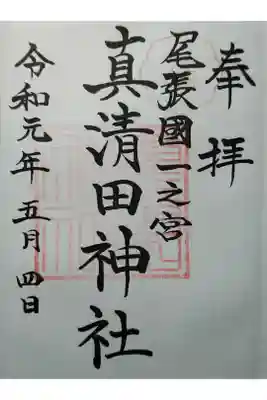 奉拝
尾張國一之宮
真清田神社
令和元年五月四日